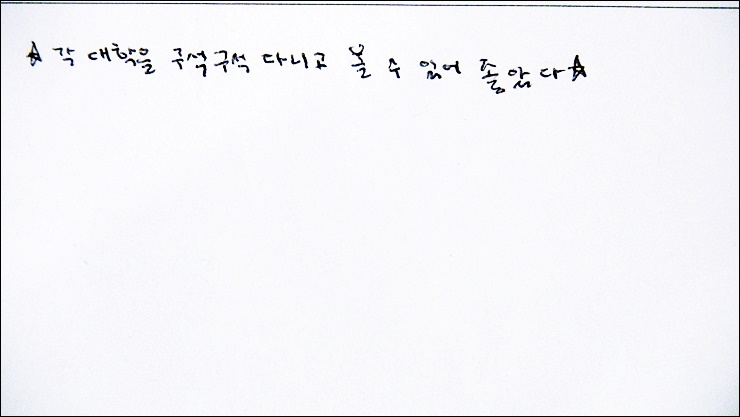 ☆ 각 대학을 구석구석 다니고 볼 수 있어 좋았다 ☆